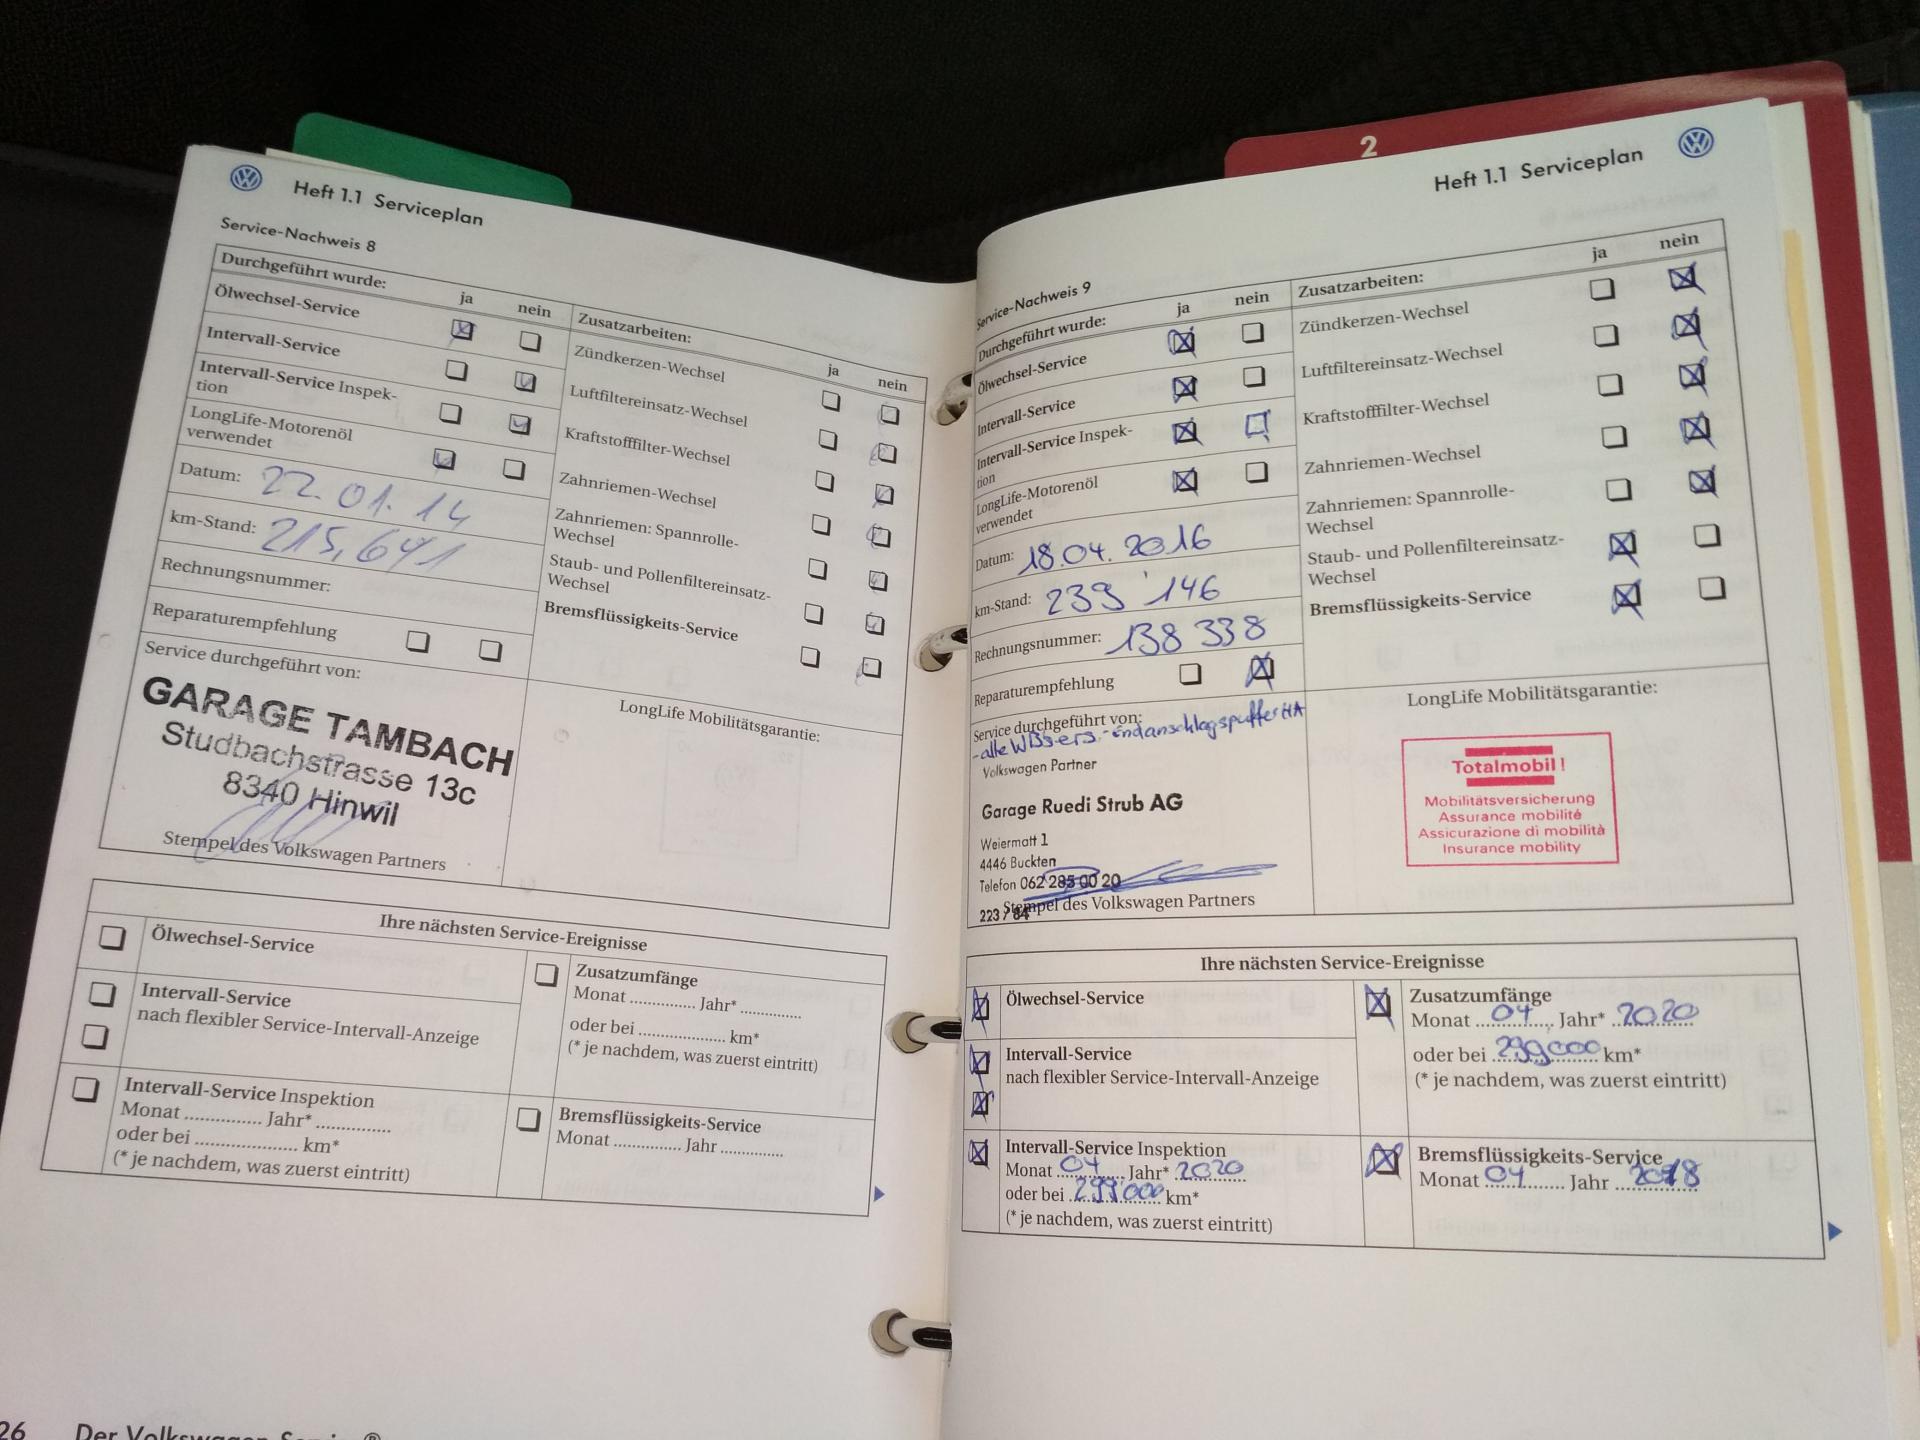 Heft 1.1 Serviceplan
Service-Nachweis 8
Durchgeführt wurde:
ja nein
Ölwechsel-Service
Intervall-Service
Intervall-Service Inspek-
tion
LongLife-Motorenöl
verwendet
Datum: 22.01.14
km-Stand: 215,641
Rechnungsnummer:
Reparaturempfehlung
Service durchgeführt von:
GARAGE TAMBACH
Studbachstrasse 13c
8340 Hinwil
Stempel des Volkswagen Partners
Zusatzarbeiten:
ja nein
Zündkerzen-Wechsel
Luftfiltereinsatz-Wechsel
Kraftstofffilter-Wechsel
Zahnriemen-Wechsel
Zahnriemen: Spannrolle-
Wechsel
Staub- und Pollenfiltereinsatz-
Wechsel
Bremsflüssigkeits-Service
LongLife Mobilitätsgarantie:
Ihre nächsten Service-Ereignisse
Ölwechsel-Service
Intervall-Service
nach flexibler Service-Intervall-Anzeige
Intervall-Service Inspektion
Monat ............. Jahr* .............
oder bei .................. km*
(* je nachdem, was zuerst eintritt)
Zusatzumfänge
Monat ............. Jahr* .............
oder bei .................. km*
(* je nachdem, was zuerst eintritt)
Bremsflüssigkeits-Service
Monat ............. Jahr .............
26 Der Volkswagen Service®
2
Heft 1.1 Serviceplan
Service-Nachweis 9
Durchgeführt wurde:
ja nein
Ölwechsel-Service
Intervall-Service
Intervall-Service Inspek-
tion
LongLife-Motorenöl
verwendet
Datum: 18.04.2016
km-Stand: 239'146
Rechnungsnummer: 138 338
Reparaturempfehlung
Service durchgeführt von:
-alle WBs ers. -Endanschlagspuffer HA
Volkswagen Partner
Garage Ruedi Strub AG
Weiermatt 1
4446 Buckten
Telefon 062 285 00 20
Stempel des Volkswagen Partners
223 / 84
Zusatzarbeiten:
ja nein
Zündkerzen-Wechsel
Luftfiltereinsatz-Wechsel
Kraftstofffilter-Wechsel
Zahnriemen-Wechsel
Zahnriemen: Spannrolle-
Wechsel
Staub- und Pollenfiltereinsatz-
Wechsel
Bremsflüssigkeits-Service
LongLife Mobilitätsgarantie:
Totalmobil!
Mobilitätsversicherung
Assurance mobilité
Assicurazione di mobilità
Insurance mobility
Ihre nächsten Service-Ereignisse
Ölwechsel-Service
Intervall-Service
nach flexibler Service-Intervall-Anzeige
Intervall-Service Inspektion
Monat 04 Jahr* 2020
oder bei 299'000 km*
(* je nachdem, was zuerst eintritt)
Zusatzumfänge
Monat 04 Jahr* 2020
oder bei 299000 km*
(* je nachdem, was zuerst eintritt)
Bremsflüssigkeits-Service
Monat 04 Jahr 2018